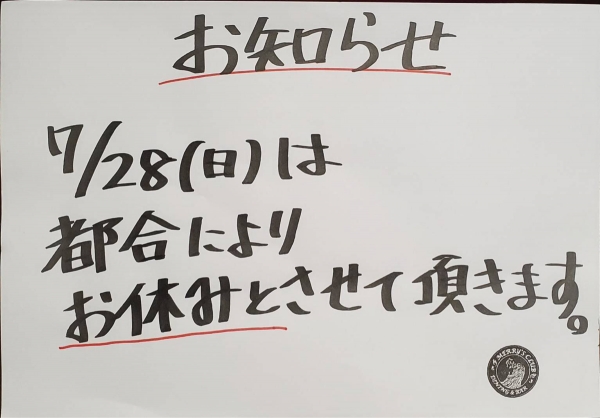 お知らせ
7/28(日)は
都合により
お休みとさせて頂きます。